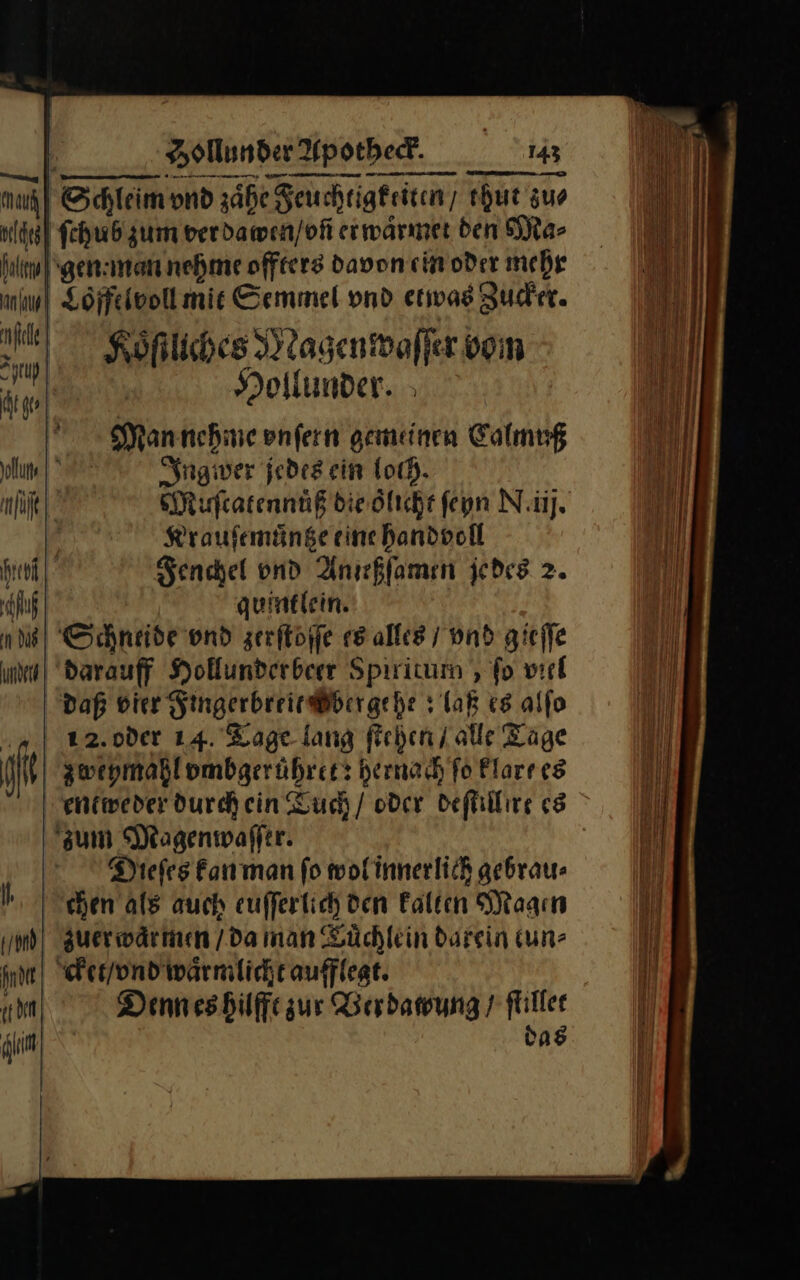 Hollunder Apotheck. 143
Schleim vnd zåhe Feuchtigkeiten / thut zu⸗
ſchub zum verdawen/vñ erwårmet den Ma⸗
gen: man nehme offters davon ein oder mehr
Lôffelvoll mit Semmel vnd etwas Zucker.
Kôſtliches Magenwaſſer vom
Hollunder.
Man nehme vnſern gemeinen Calmuß
Ingwer jedes ein loth.
Muſcatennůß die ôlicht ſeyn N. iij.
Krauſemůntze eine handvoll
Fenchel vnd Anießſamen jedes 2.
quintlein.
Schneide vnd zerſtoſſe es alles / vnd gieſſe
darauff Hollunderbeer Spiritum , ſo viel
daß vier Fingerbreit ůbergehe : laß es alſo
12. oder 14. Tage lang ſtehen / alle Tage
zweymahl vmbgerůhret : hernach ſo klare es
entweder durch ein Tuch / oder deſtillire es
zum Magenwaſſer.
Dieſes kan man ſo wol innerlich gebrau⸗
chen als auch euſſerlich den kalten Magen
zuerwårmen / da man Tůchlein darein tun⸗
cket/vnd wårmlicht aufflegt.
Denn es hilfft zur Verdawung / ſtillet
das